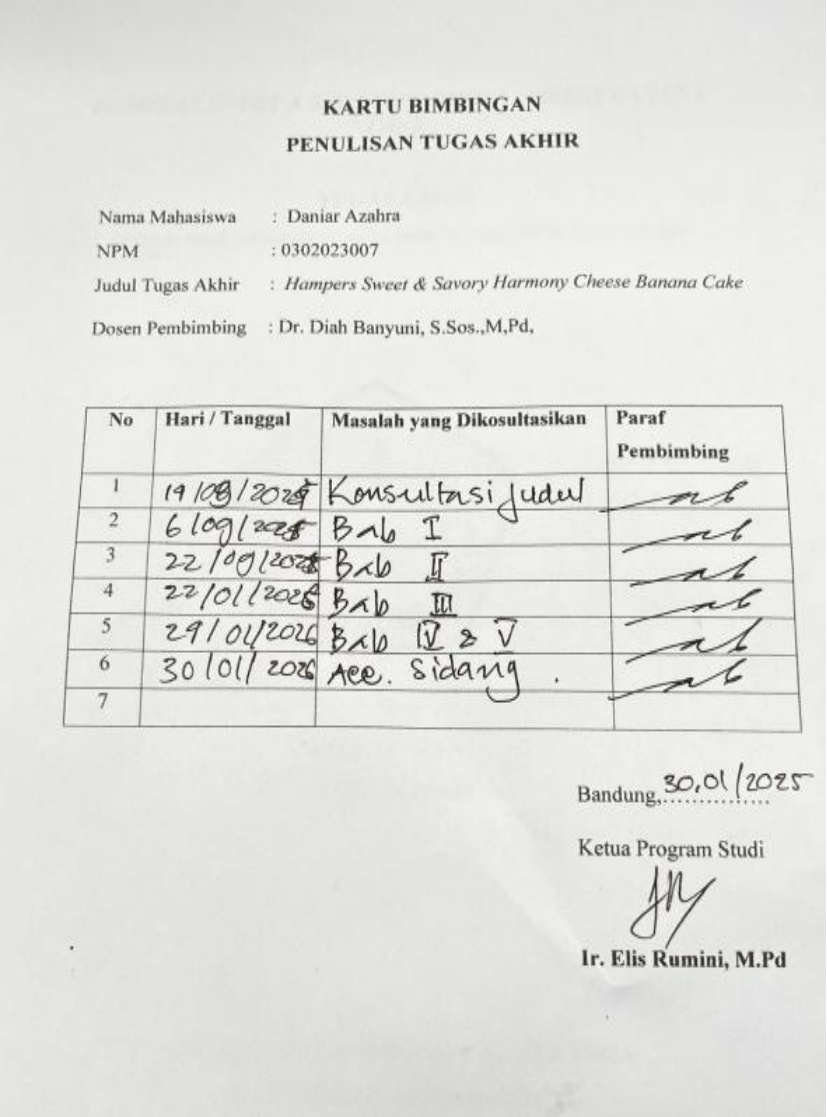 KARTU BIMBINGAN
PENULISAN TUGAS AKHIR
Nama Mahasiswa : Daniar Azahra
NPM : 0302023007
Judul Tugas Akhir : Hampers Sweet & Savory Harmony Cheese Banana Cake
Dosen Pembimbing : Dr. Diah Banyuni, S.Sos.,M,Pd,
No Hari / Tanggal Masalah yang Dikosultasikan Paraf Pembimbing
1 19/08/2025 Konsultasi Judul
2 6/09/2025 Bab I
3 22/09/2025 Bab II
4 22/01/2026 Bab III
5 29/01/2026 Bab IV & V
6 30/01/2026 Acc. Sidang .
7
Bandung, 30,01/2025
Ketua Program Studi
Ir. Elis Rumini, M.Pd